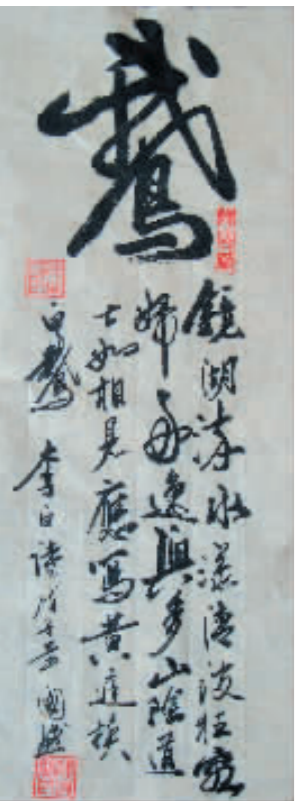 鵞
鏡湖流水漾清波狂客
歸舟逸興多山陰道
士如相見應寫黃庭換
白鵞 李白詩戊子 國